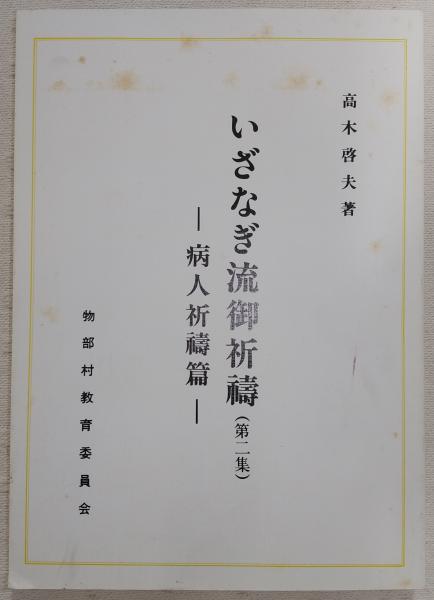 高木啓夫著
いざなぎ流御祈禱(第二集)
―病人祈禱篇―
物部村教育委員会